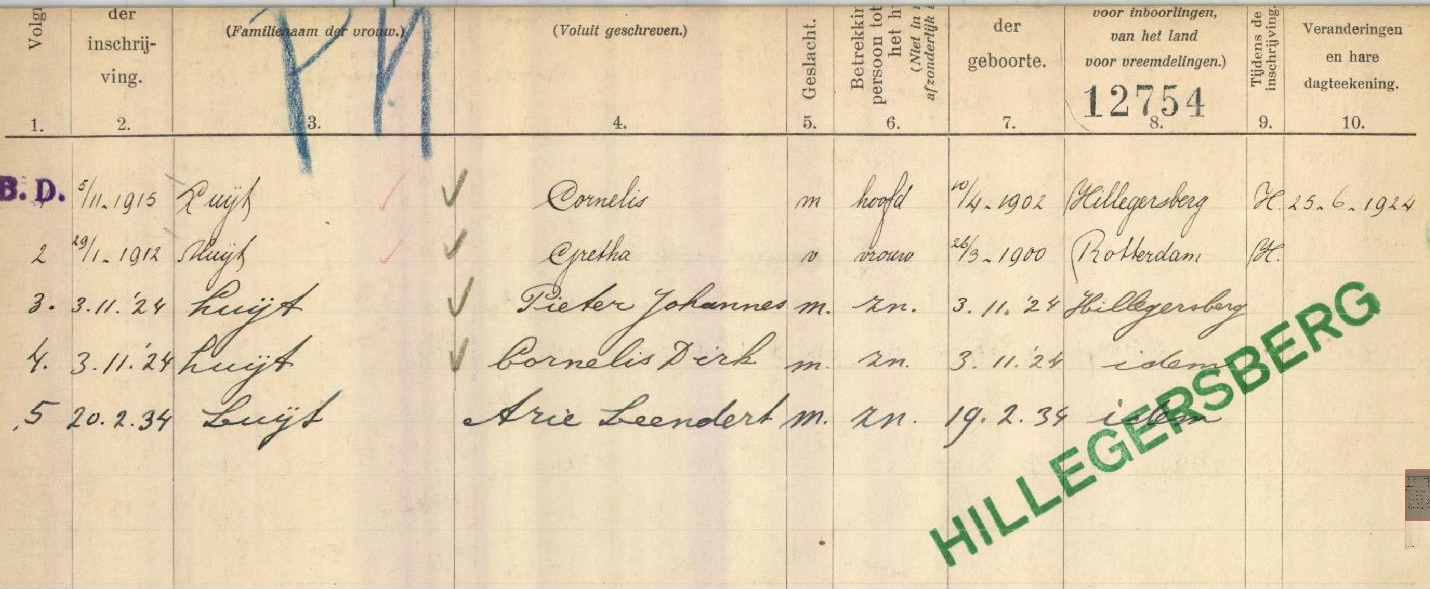 Volgn
der inschrij- ving.
(Familienaam der vrouw.)
PN
(Voluit geschreven.)
Geslacht.
Betrekkin persoon tot het h (Niet in afzonderlijk
der geboorte.
voor inboorlingen, van het land voor vreemdelingen.)
12754
Tijdens de inschrijving.
Veranderingen en hare dagteekening.
1. 2. 3. 4. 5. 6. 7. 8. 9. 10.
B. D. 5/11.1915 Luijt Cornelis m hoofd 10/4.1902 Hillegersberg H. 25.6.1924
2 29/1.1912 Gretha v vrouw 26/3.1900 Rotterdam H.
3. 3.11.'24 Luijt Pieter Johannes m. zn. 3.11.'24 Hillegersberg
4. 3.11.'24 Luijt Cornelis Dirk m. zn. 3.11.'24 idem
5 20.2.34 Luijt Arie Leendert m. zn. 19.2.34 idem
HILLEGERSBERG